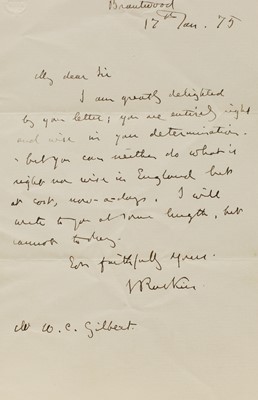 Brantwood
17th Jan. 75
My dear Sir
I am greatly delighted
by your letter; you are entirely right
and wise in your determination.
- but you can neither do what is
right nor wise in England but
at cost, now-a-days. I will
write to you at some length, but
cannot today.
Ever faithfully yours.
J Ruskin
Mr W. C. Gilbert.